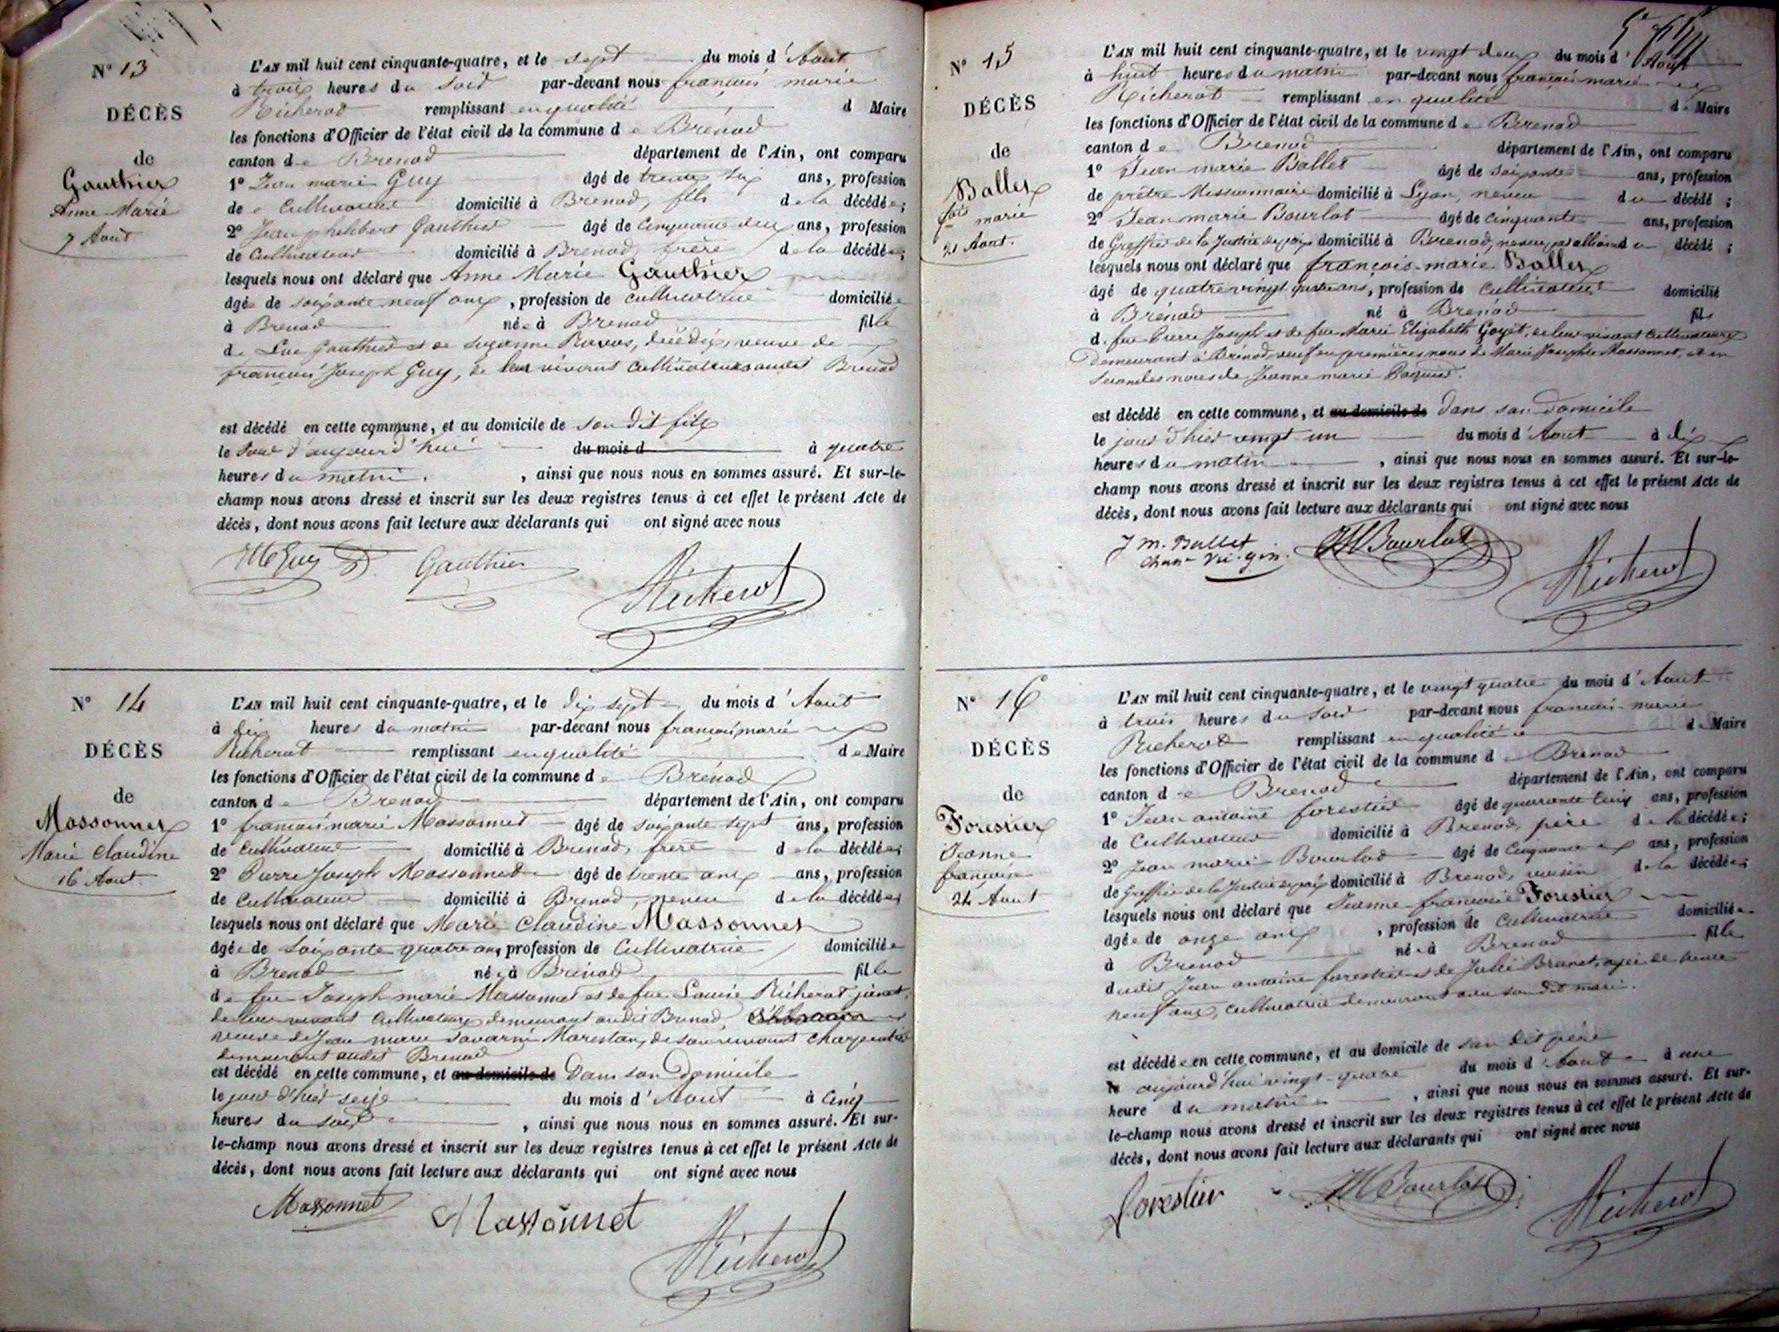 N° 13
DÉCÈS
de
Gauthier
Anne Marie
7 Aout
L'AN mil huit cent cinquante-quatre, et le sept du mois d'Aout
à trois heures du soir par-devant nous françois marie
Richerot remplissant en qualité d Maire
les fonctions d'Officier de l'état civil de la commune de Brénod
canton de Brenod département de l'Ain, ont comparu
1° Jean marie Guy âgé de trente six ans, profession
de Cultivateur domicilié à Brenod, fils de la décédée;
2° Jean philibert Gauthier âgé de cinquante deux ans, profession
de Cultivateur domicilié à Brenod, frère de la décédée;
lesquels nous ont déclaré que Anne Marie Gauthier
âgée de soixante neuf ans, profession de cultivatrice domiciliée
à Brenod née à Brenod fille
de Luc Gauthier et de Suzanne Ravas, décédés, veuve de
françois Joseph Guy, de leur vivant Cultivateurs audit Brenod
est décédé en cette commune, et au domicile de son dit fils
le Jour d'aujourd'hui du mois d à quatre
heures du matin, ainsi que nous nous en sommes assuré. Et sur-le-
champ nous avons dressé et inscrit sur les deux registres tenus à cet effet le présent Acte de
décès, dont nous avons fait lecture aux déclarants qui ont signé avec nous
Guy Gauthier Richerot
N° 14
DÉCÈS
de
Massonnet
Marie Claudine
16 Aout.
L'AN mil huit cent cinquante-quatre, et le dix sept du mois d'Aout
à dix heures du matin par-devant nous françois marie
Richerot remplissant en qualité de Maire
les fonctions d'Officier de l'état civil de la commune de Brénod
canton de Brenod département de l'Ain, ont comparu
1° françois marie Massonnet âgé de soixante sept ans, profession
de Cultivateur domicilié à Brenod, frère de la décédée;
2° Pierre Joseph Massonnet âgé de trente ans, profession
de Cultivateur domicilié à Brenod, neveu de la décédée;
lesquels nous ont déclaré que Marie Claudine Massonnet
âgée de soixante quatre ans, profession de Cultivatrice domiciliée
à Brenod née à Brénod fille
de feu Joseph marie Massonnet et de feue Louise Richerot
de leur vivant Cultivateurs demeurant audit Brenod,
veuve de Jean marie de son vivant charpentier
demeurant audit Brenod
est décédé en cette commune, et au domicile de dans son domicile
le jour d'hier seize du mois d'Aout à cinq
heures du soir, ainsi que nous nous en sommes assuré. Et sur-
le-champ nous avons dressé et inscrit sur les deux registres tenus à cet effet le présent Acte de
décès, dont nous avons fait lecture aux déclarants qui ont signé avec nous
Massonnet Massonnet Richerot
N° 15
DÉCÈS
de
Ballet
fois marie
21 Aout.
L'AN mil huit cent cinquante-quatre, et le vingt deux du mois d'Aout
à huit heures du matin par-devant nous françois marie
Richerot remplissant en qualité de Maire
les fonctions d'Officier de l'état civil de la commune de Brenod
canton de Brenod département de l'Ain, ont comparu
1° Jean marie Ballet âgé de soixante ans, profession
de prêtre Missionnaire domicilié à Lyon, neveu du décédé;
2° Jean marie Bourlot âgé de cinquante ans, profession
de Greffier de la Justice de paix domicilié à Brenod, neveu par alliance du décédé;
lesquels nous ont déclaré que françois-marie Ballet
âgé de quatre vingt quatre ans, profession de Cultivateur domicilié
à Brénod né à Brénod fils
d. feu Pierre Joseph et de feue Marie Elizabeth Goyet, de leur vivant cultivateurs
demeurant à Brénod, veuf en premières noces de Marie Josephte Massonnet, et en
secondes noces de Jeanne marie
est décédé en cette commune, et au domicile de dans son domicile
le jour d'hier vingt un du mois d'Aout à dix
heures du matin, ainsi que nous nous en sommes assuré. Et sur-le-
champ nous avons dressé et inscrit sur les deux registres tenus à cet effet le présent Acte de
décès, dont nous avons fait lecture aux déclarants qui ont signé avec nous
J m. Ballet JM Bourlot Richerot
N° 16
DÉCÈS
de
Forestier
Jeanne
françoise
24 Aout
L'AN mil huit cent cinquante-quatre, et le vingt quatre du mois d'Aout
à trois heures du soir par-devant nous françois marie
Richerot remplissant en qualité d. Maire
les fonctions d'Officier de l'état civil de la commune de Brenod
canton de Brenod département de l'Ain, ont comparu
1° Jean antoine forestier âgé de quarante cinq ans, profession
de Cultivateur domicilié à Brenod, père de la décédée;
2° Jean marie Bourlot âgé de Cinquante ans, profession
de Greffier de la Justice de paix domicilié à Brenod, voisin de la décédée;
lesquels nous ont déclaré que Jeanne françoise Forestier
âgée de onze ans, profession de Cultivatrice domiciliée
à Brenod née à Brenod fille
dudit Jean antoine forestier et de Julie Brunet, agée de trente
neuf ans, cultivatrice demeurant avec son dit mari.
est décédée en cette commune, et au domicile de son dit père
le aujourd'hui vingt-quatre du mois d'Aout à une
heure du matin, ainsi que nous nous en sommes assuré. Et sur-
le-champ nous avons dressé et inscrit sur les deux registres tenus à cet effet le présent Acte de
décès, dont nous avons fait lecture aux déclarants qui ont signé avec nous
forestier JM Bourlot Richerot